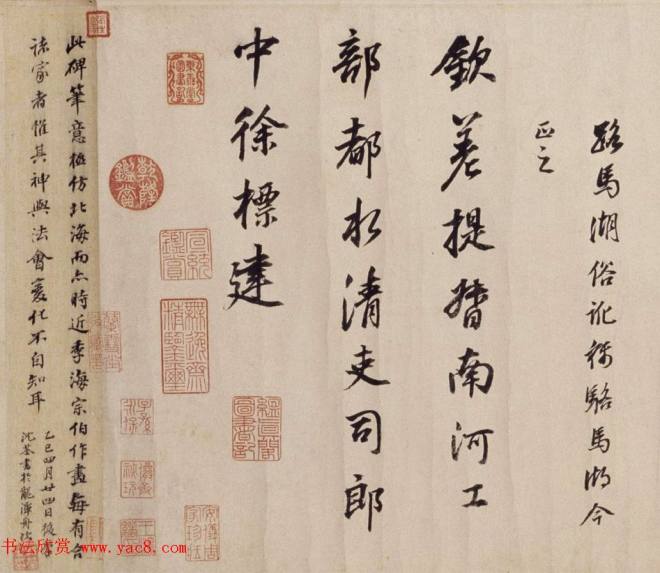 路馬湖俗訛稱駱馬湖今
正之
欽差提督南河工
部都水清吏司郎
中徐標建
乾隆鑑賞
宣統鑑賞
無逸齋精鑒璽
安儀周家珍藏
此碑筆意極仿北海而亦時近季海宗伯作書每有合
諸家者惟其神與法會變化不自知耳
乙巳四月廿四日後學
沈荃書於龍潭舟次
书法欣赏 www.yac8.com